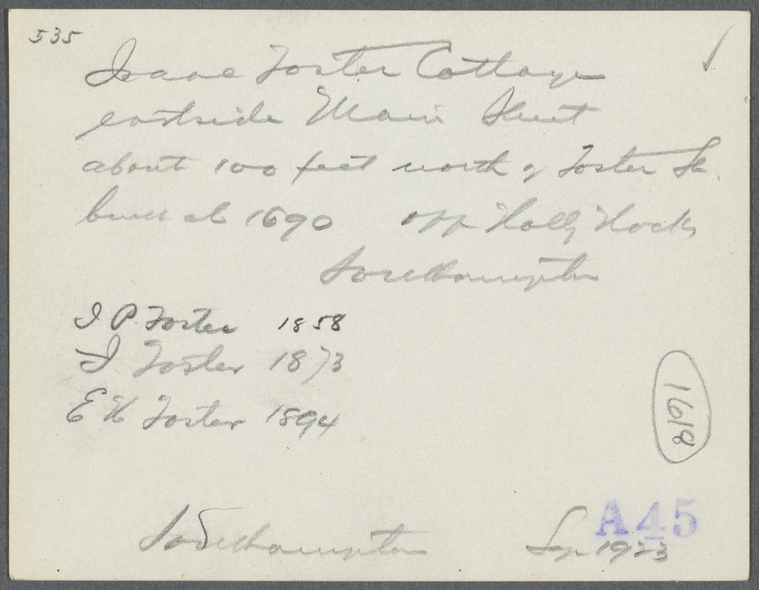 535
Isaac Foster Cottage
eastside Main Street
about 100 feet north of Foster St.
built abt 1690 opp Holly Hocks
Southampton
I P. Foster 1858
I Foster 1873
E H Foster 1894
1618
A45
Southampton Sep 1923